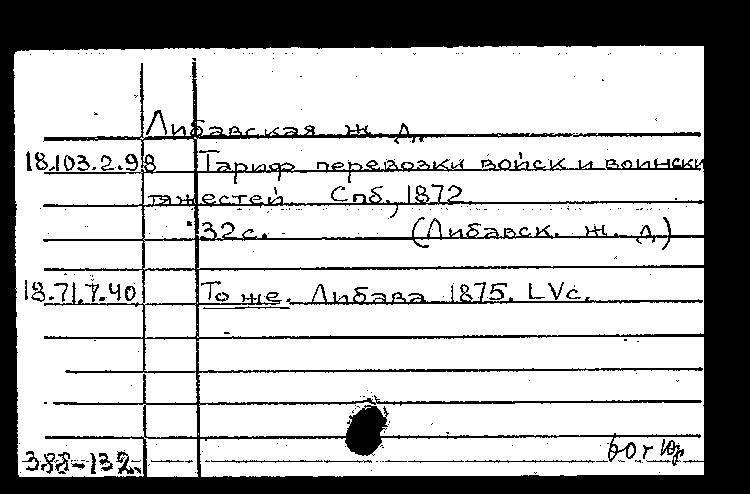 Либавская ж. д.
18.103.2.98 Тариф перевозки войск и воински
тяжестей Спб., 1872
32 с. (Либавск. ж. д.)
18.71.7.40 То же. Либава 1875. LVс.
388-132.